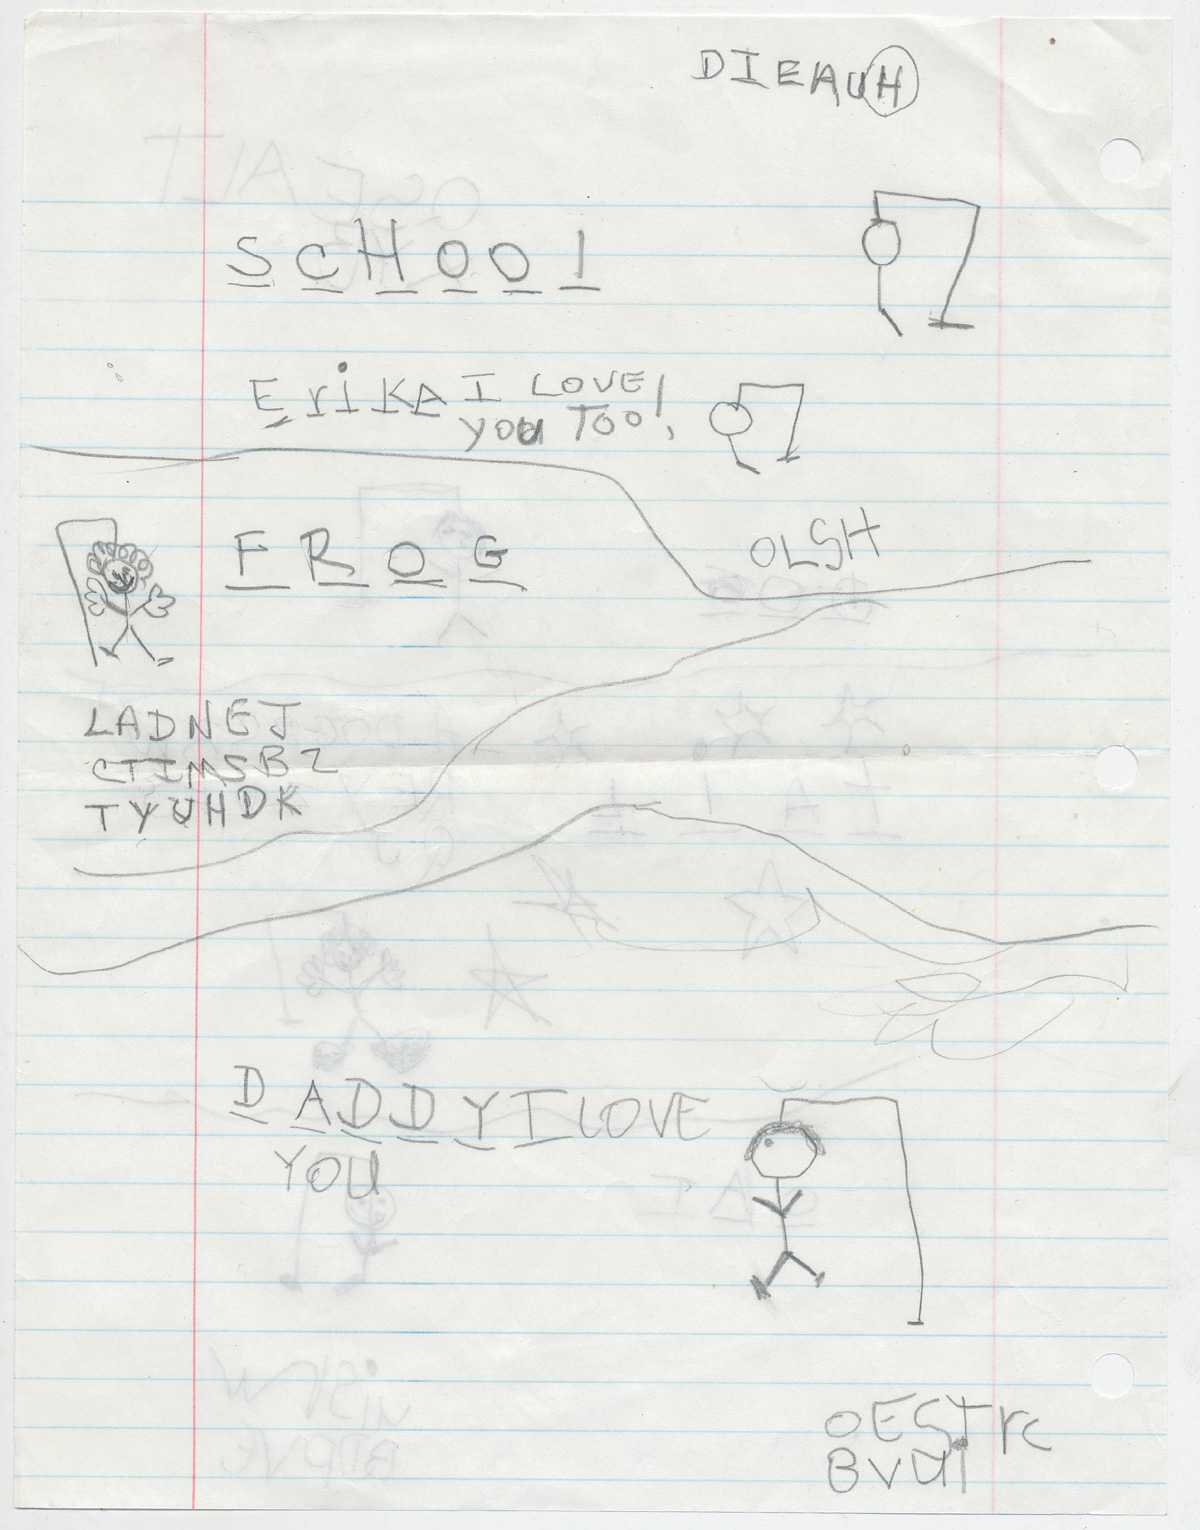 DIEAUH
SCHOOl
ErikA I LOVE
yOU TOO!
FROG
OLSH
LADNEJ
CTIMSBZ
TYUHDK
DADDY I LOVE
YOU
OESTrc
BVUI